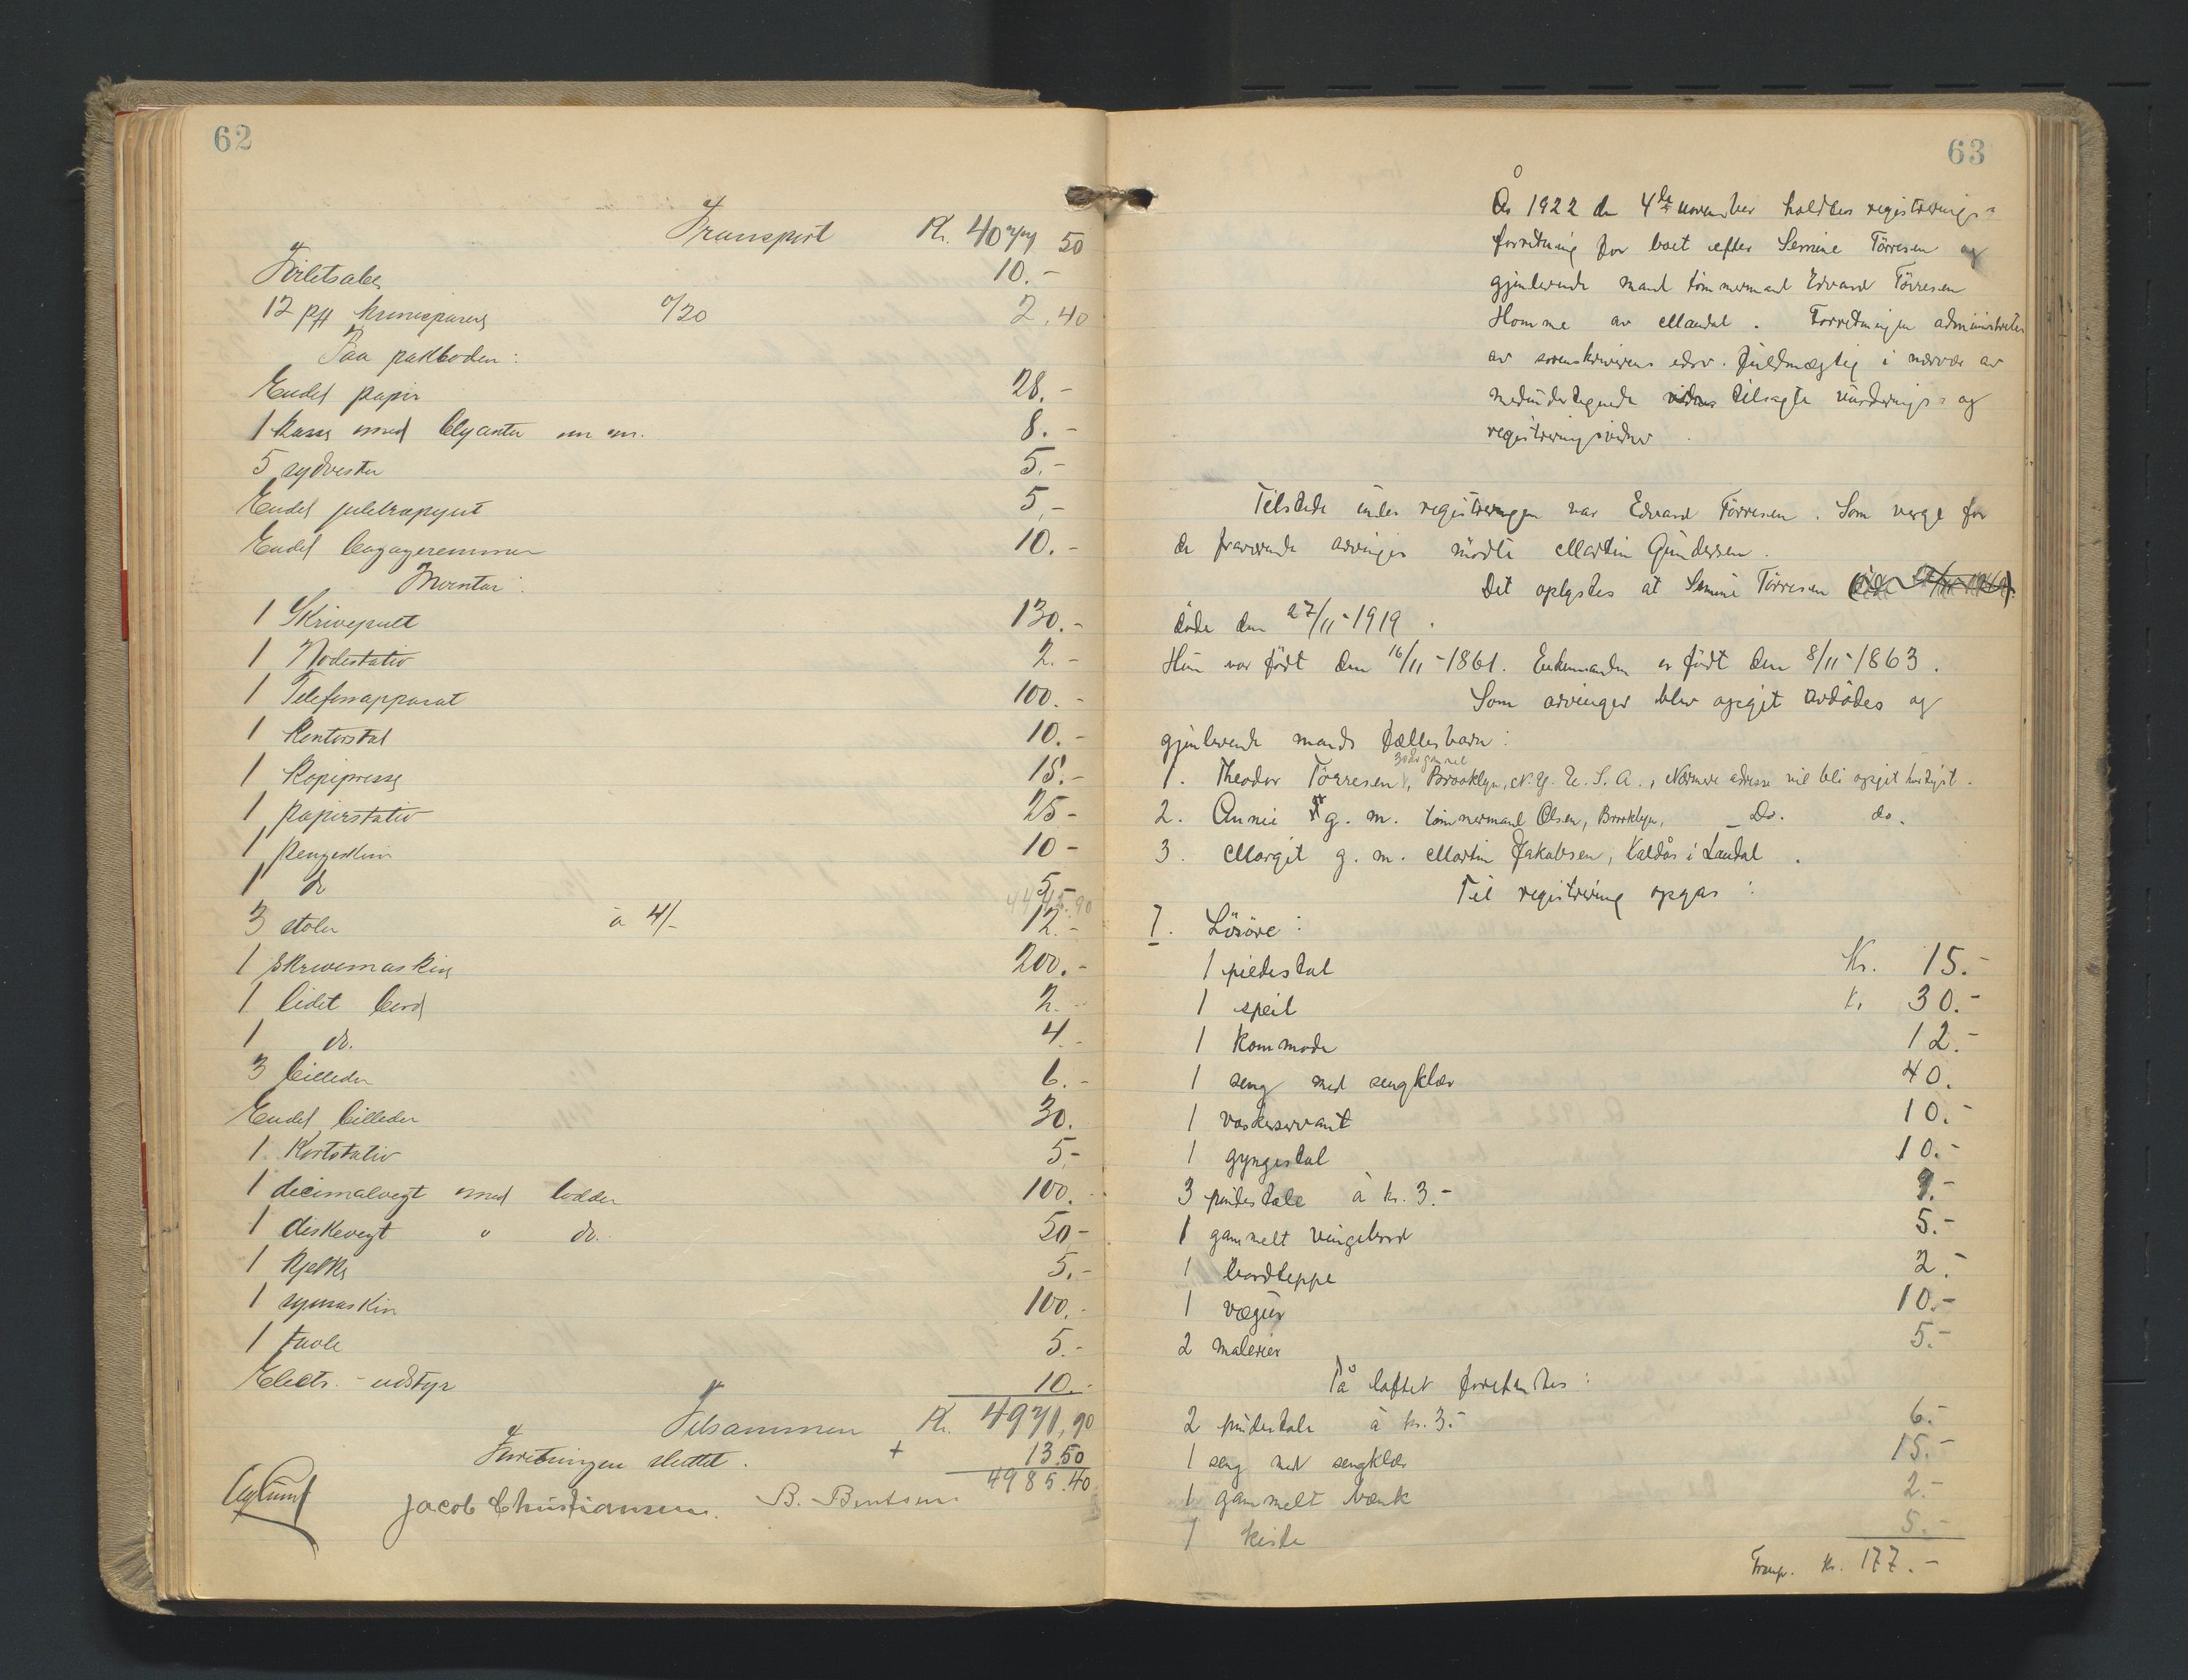 62
Transport Kr. 4077 50
Toiletsaker 10.-
12 pk. 0/20 2.40
Paa pakboden:
Endel papir 28.-
1 kasse med blyanter m m. 8.-
5 sydvester 5.-
Endel juletrepynt 5.-
Endel bagageremmer 10.-
Inventar:
1 Skrivepult 130.-
1 Nodestativ 2.-
1 Telefonapparat 100.-
1 Kontorstol 10.-
1 Kopipresse 15.-
1 papirstativ 25-
1 pengeskrin 10-
1 do 5
4445.90
3 stoler à 4/- 12.-
1 skrivemaskin 200.-
1 lidet bord 2.-
1 do. 4.-
3 billeder 6.-
Endel billeder 30.
1 Kortstativ 5-
1 decimalvegt med lodder 100.-
1 diskevegt " do. 50-
1 kjelke 5.-
1 symaskin 100.-
1 tavle 5.-
Electr.-udstyr 10.-
Tilsammen Kr. 4971,90
Forretningen sluttet. + 13.50
4985.40
Jacob Christiansen. B. Bentsen
63
År 1922 den 4de november holdtes registrerings-
forretning for boet efter Semine Tørresen og
gjenlevende mand tømmermand Edvard Tørresen
Homme av Mandal. Forretningen administreres
av sorenskriverens edsv. fuldmægtig i nærvær av
medundertegnede vidner tilsagte vurderings- og
registreringsvidner.
Tilstede under registreringen var Edvard Tørresen. Som verge for
de fraværende arvinger møtte Martin Gundersen.
Det oplystes at Semine Tørresen
døde den 27/11-1919.
Hun var født den 16/11-1861. Enkemanden er født den 8/11-1863.
Som arvinger blev opgit avdødes og
gjenlevende mands fællesbarn:
30 år gammel
1. Theodor Tørresen, Brooklyn, N.Y. U.S.A., Nærmere adresse vil bli opgit hurtigst.
2. Annie g. m. tømmermand Olsen, Brooklyn, Do. do.
3. Margit g. m. Martin Jakobsen, Kaldås i Laudal.
Til registrering opgas:
I. Løsøre:
1 piedestal Kr. 15.-
1 speil Kr 30.-
1 kommode 12.-
1 seng med sengklær 40.
1 vaskeservant 10.-
1 gyngestol 10.-
3 pindestole à kr. 3.- 9.-
1 gammelt vingebord 5.-
1 bordteppe 2.-
1 vægur 10.-
2 malerier 5.-
På loftet forefandtes:
2 pindestole à kr. 3.- 6.-
1 seng med sengklær 15.-
1 gammelt bænk 2.-
1 kiste 5.-
Transp. kr. 177.-